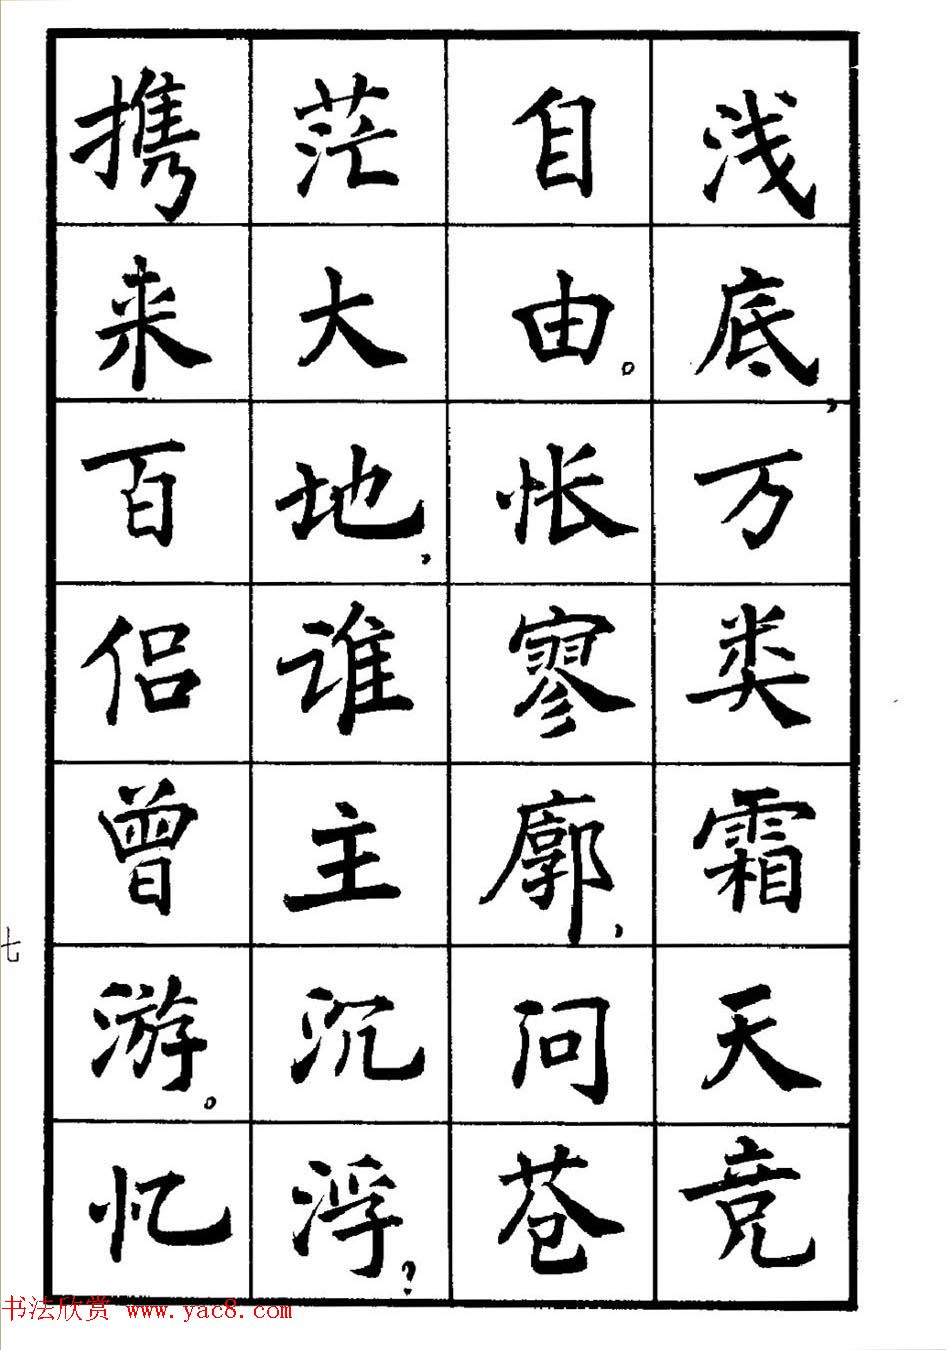 浅底，万类霜天竞
自由。怅寥廓，问苍
茫大地，谁主沉浮？
携来百侣曾游。忆
七
书法欣赏 www.yac8.com